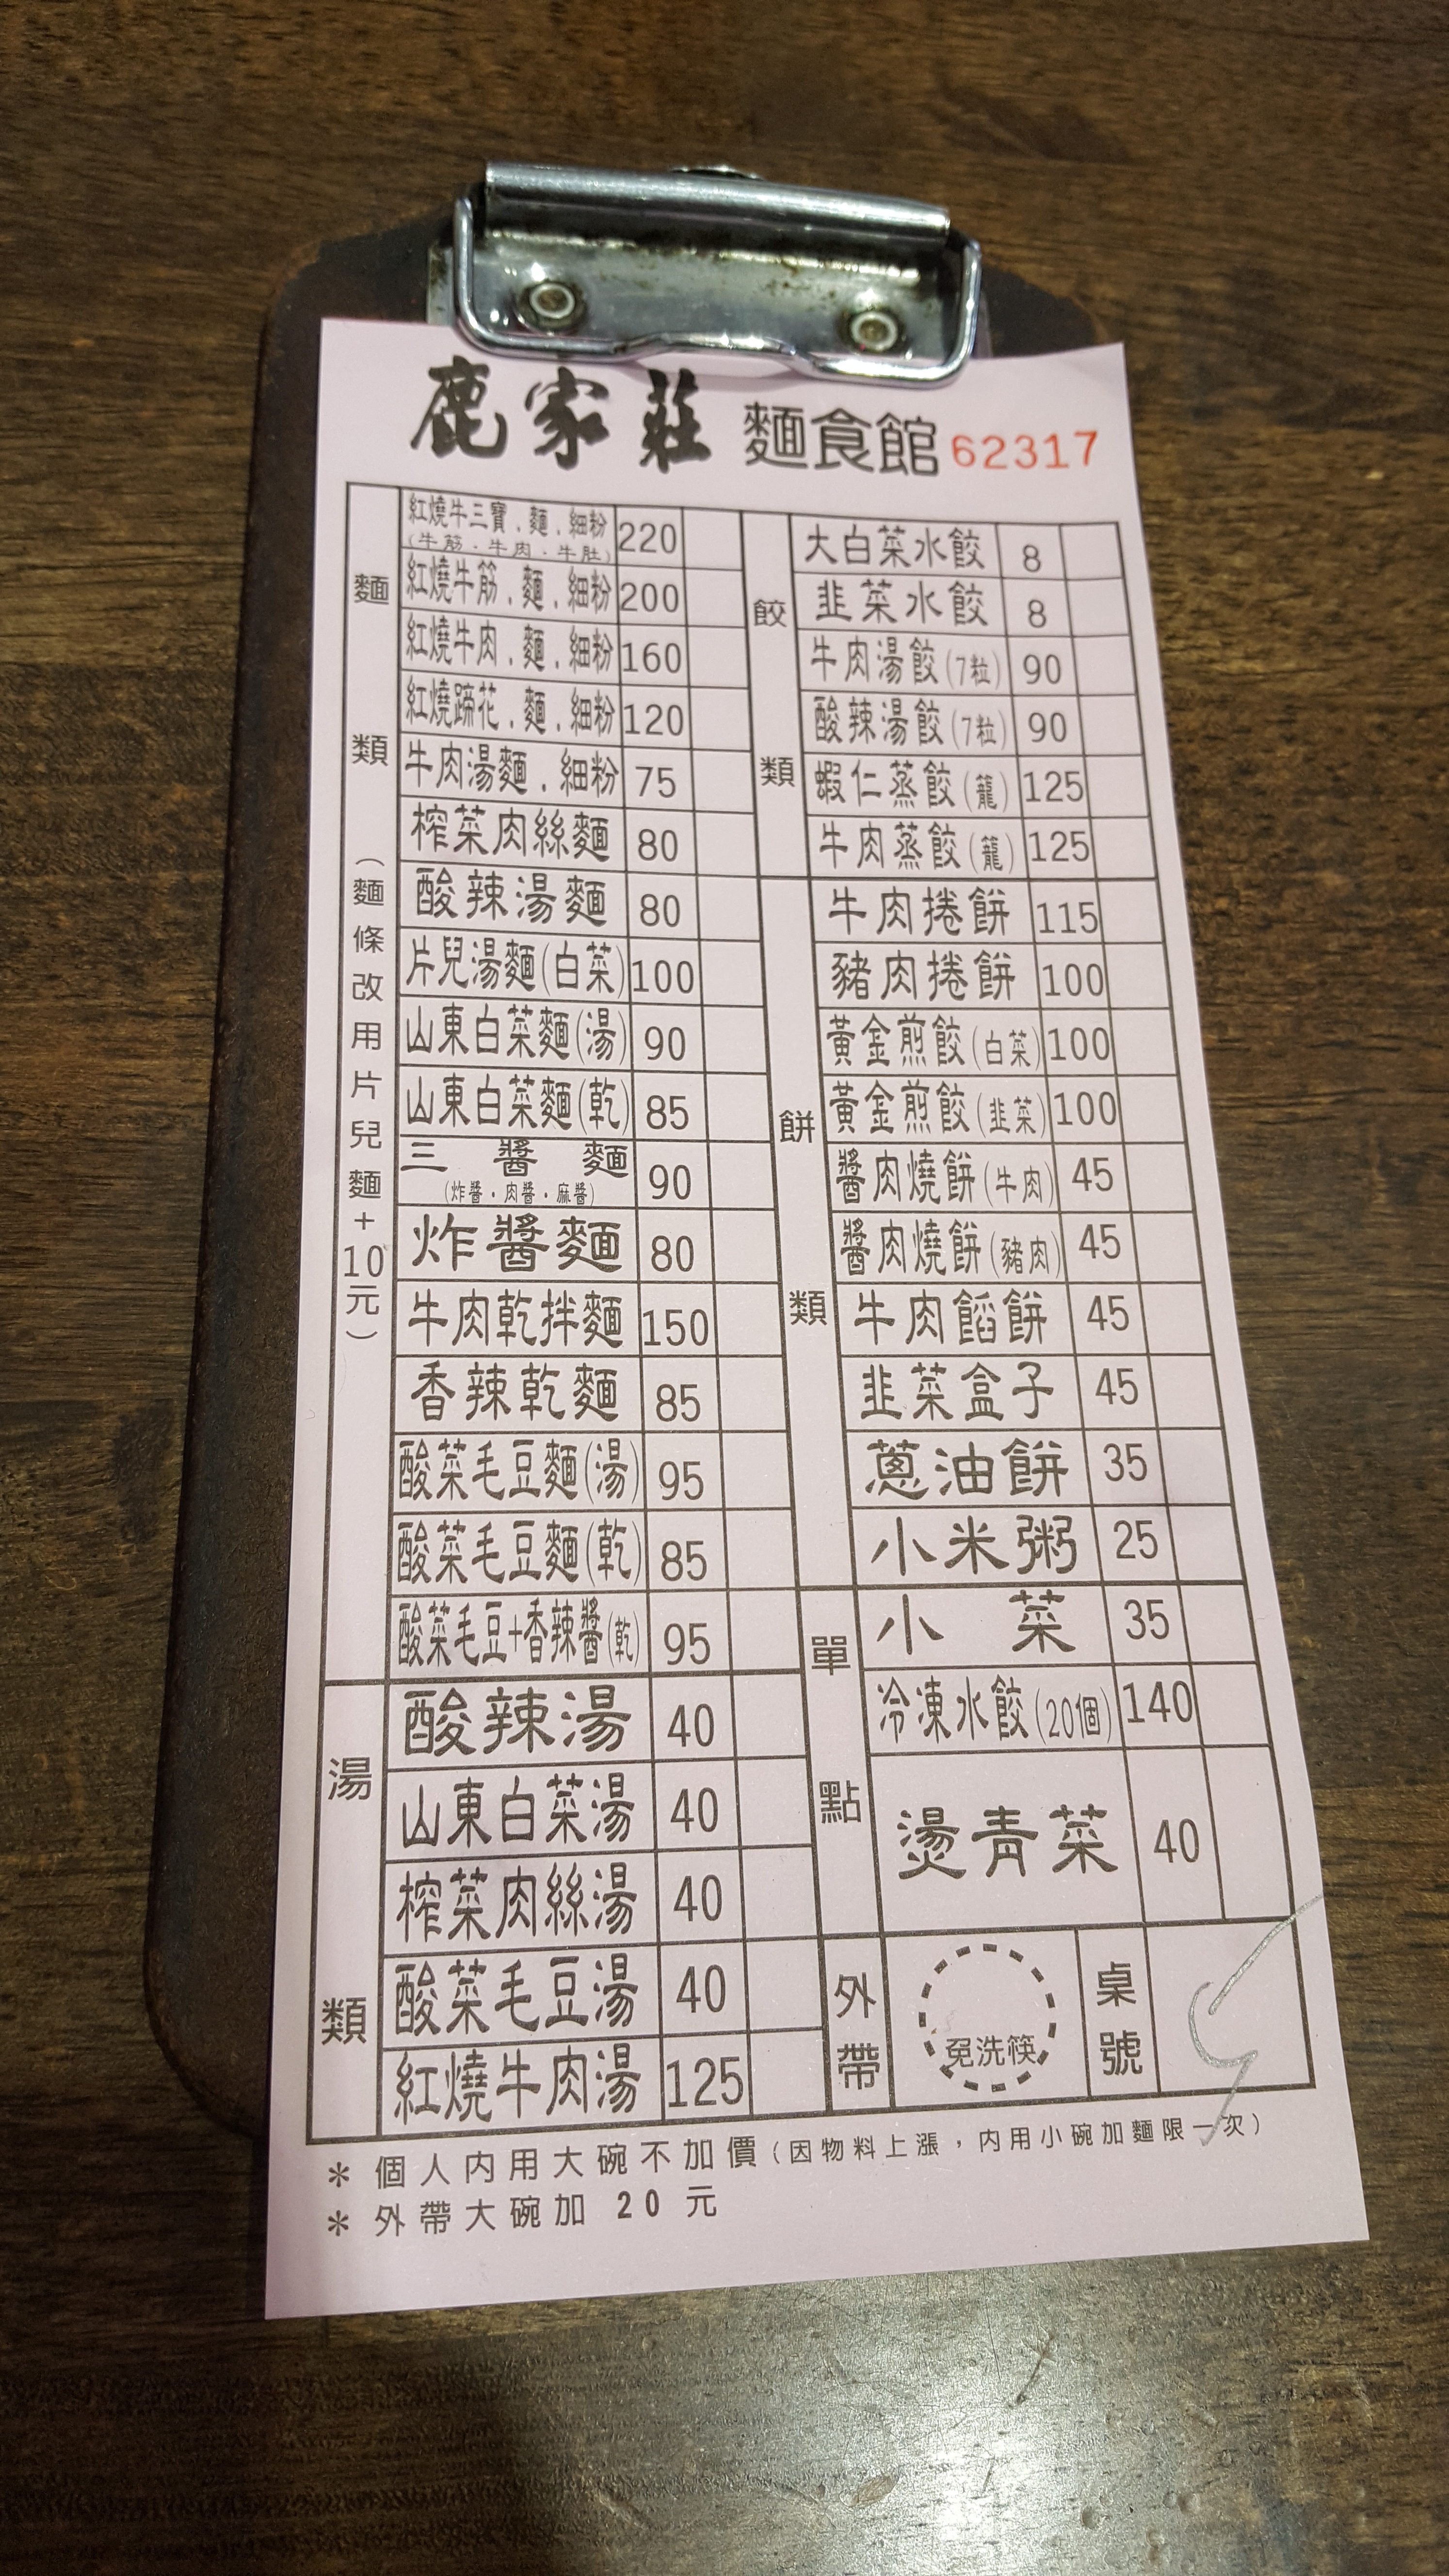 鹿家莊 麵食館 62317
麵類(麵條改用片兒麵+10元)
紅燒牛三寶.麵.細粉 220
(牛筋.牛肉.牛肚)
紅燒牛筋.麵.細粉 200
紅燒牛肉.麵.細粉 160
紅燒蹄花.麵.細粉 120
牛肉湯麵.細粉 75
榨菜肉絲麵 80
酸辣湯麵 80
片兒湯麵(白菜) 100
山東白菜麵(湯) 90
山東白菜麵(乾) 85
三醬麵 90
(炸醬.肉醬.麻醬)
炸醬麵 80
牛肉乾拌麵 150
香辣乾麵 85
酸菜毛豆麵(湯) 95
酸菜毛豆麵(乾) 85
酸菜毛豆+香辣醬(乾) 95
湯類
酸辣湯 40
山東白菜湯 40
榨菜肉絲湯 40
酸菜毛豆湯 40
紅燒牛肉湯 125
餃類
大白菜水餃 8
韭菜水餃 8
牛肉湯餃(7粒) 90
酸辣湯餃(7粒) 90
蝦仁蒸餃(籠) 125
牛肉蒸餃(籠) 125
餅類
牛肉捲餅 115
豬肉捲餅 100
黃金煎餃(白菜) 100
黃金煎餃(韭菜) 100
醬肉燒餅(牛肉) 45
醬肉燒餅(豬肉) 45
牛肉餡餅 45
韭菜盒子 45
蔥油餅 35
小米粥 25
單點
小菜 35
冷凍水餃(20個) 140
燙青菜 40
外帶
免洗筷
桌號
5
* 個人內用大碗不加價(因物料上漲,內用小碗加麵限一次)
* 外帶大碗加 20 元